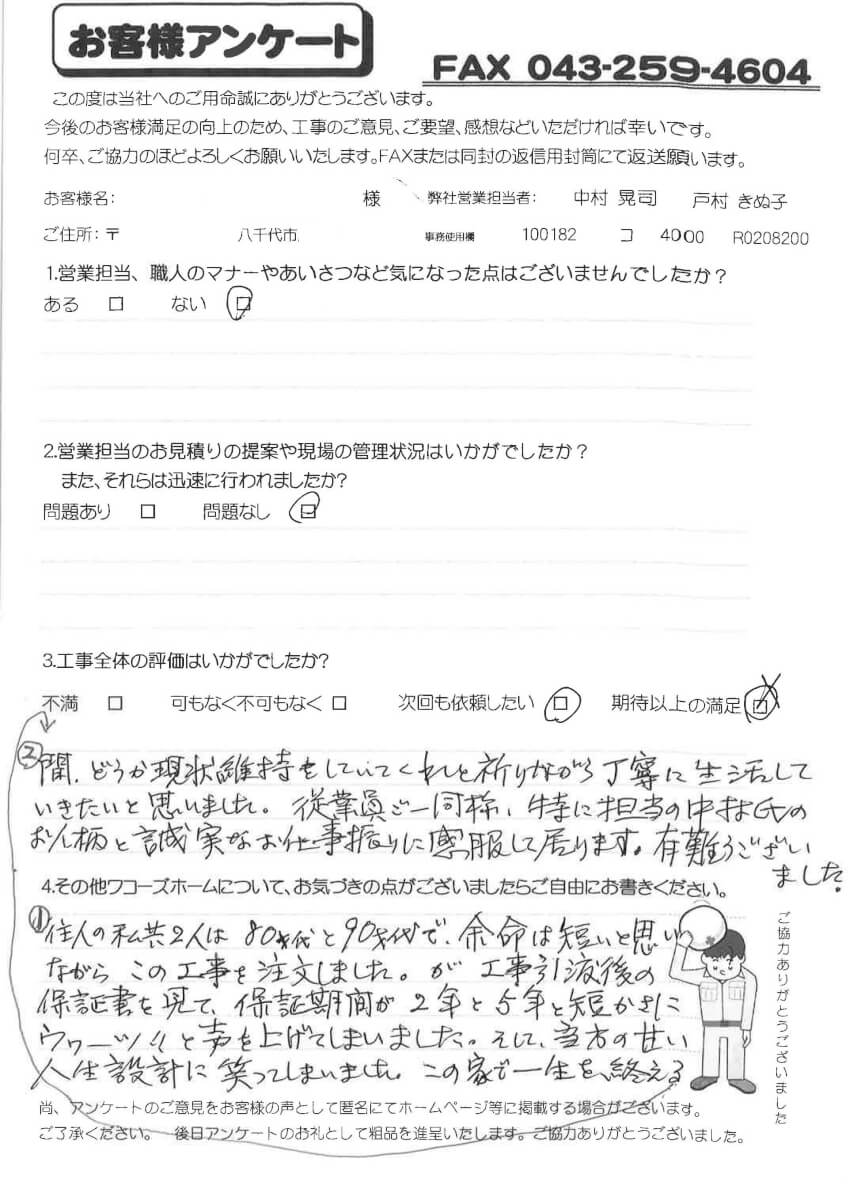 お客様アンケート
FAX 043-259-4604
この度は当社へのご用命誠にありがとうございます。
今後のお客様満足の向上のため、工事のご意見、ご要望、感想などいただければ幸いです。
何卒、ご協力のほどよろしくお願いいたします。FAXまたは同封の返信用封筒にて返送願います。
お客様名： 様 弊社営業担当者： 中村 晃司 戸村 きぬ子
ご住所：〒 八千代市 事務使用欄 100182 コ 4000 R0208200
1.営業担当、職人のマナーやあいさつなど気になった点はございませんでしたか？
ある □ ない □
2.営業担当のお見積りの提案や現場の管理状況はいかがでしたか？
また、それらは迅速に行われましたか？
問題あり □ 問題なし □
3.工事全体の評価はいかがでしたか？
不満 □ 可もなく不可もなく □ 次回も依頼したい □ 期待以上の満足 □
② 間、どうか現状維持をしていてくれと祈りながら丁寧に生活して
いきたいと思いました。従業員ご一同様、特に担当の中村氏の
お人柄と誠実なお仕事振りに感服して居ります。有難うござい
ました。
4.その他ワコーズホームについて、お気づきの点がございましたらご自由にお書きください。
① 住人の私共2人は80才代と90才代で、余命は短いと思い
ながらこの工事を注文しました。が工事引渡後の
保証書を見て、保証期間が2年と5年と短かさに
ウワーッ!!と声を上げてしまいました。そして、当方の甘い
人生設計に笑ってしまいました。この家で一生を、終える
ご協力ありがとうございました
尚、アンケートのご意見をお客様の声として匿名にてホームページ等に掲載する場合がございます。
ご了承ください。 後日アンケートのお礼として粗品を進呈いたします。ご協力ありがとうございました。